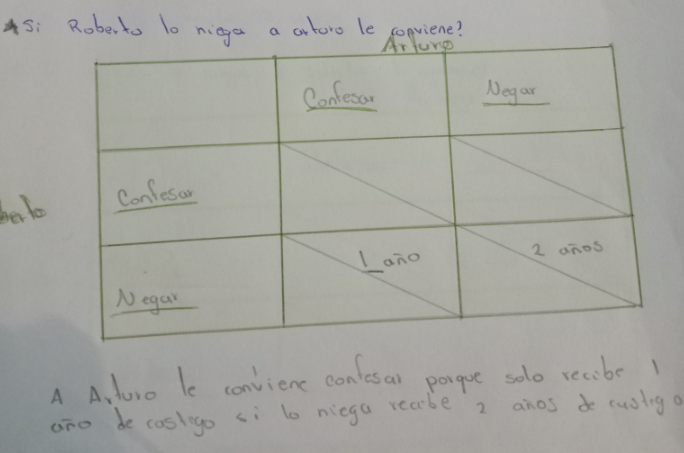 *Si Roberto lo niega a arturo le conviene?
Arturo
Confesar
Negar
Confesar
berto
1 año
2 años
Negar
A Arturo le conviene confesar porque solo recibe 1
año de castigo si lo niega recibe 2 años de castigo